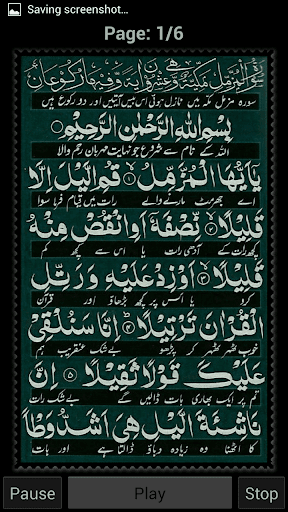 Saving screenshot...
Page: 1/6
سورہ مزمل مکہ میں نازل ہوئی اس میں آیتیں اور دو رکوع ہیں
بِسْمِ اللّٰهِ الرَّحْمٰنِ الرَّحِيْمِ
اللہ کے نام سے شروع جو نہایت مہربان رحم والا
يٰٓاَيُّهَا الْمُزَّمِّلُ ۝١ قُمِ الَّيْلَ اِلَّا
اے جھرمٹ مارنے والے رات میں قیام فرما سوا
قَلِيْلًا ۝٢ نِّصْفَهٗٓ اَوِ انْقُصْ مِنْهُ
کچھ رات کے آدھی رات یا اس سے کچھ کم
قَلِيْلًا ۝٣ اَوْ زِدْ عَلَيْهِ وَ رَتِّلِ
کرو یا اس پر کچھ بڑھاؤ اور قرآن
الْقُرْاٰنَ تَرْتِيْلًا ۝٤ اِنَّا سَنُلْقِيْ
خوب ٹھہر ٹھہر کر پڑھو بے شک عنقریب ہم
عَلَيْكَ قَوْلًا ثَقِيْلًا ۝٥ اِنَّ
تم پر ایک بھاری بات ڈالیں گے بے شک رات
نَاشِئَةَ الَّيْلِ هِيَ اَشَدُّ وَطْاً
کا اٹھنا وہ زیادہ دباؤ ڈالتا ہے اور بات
Pause
Play
Stop